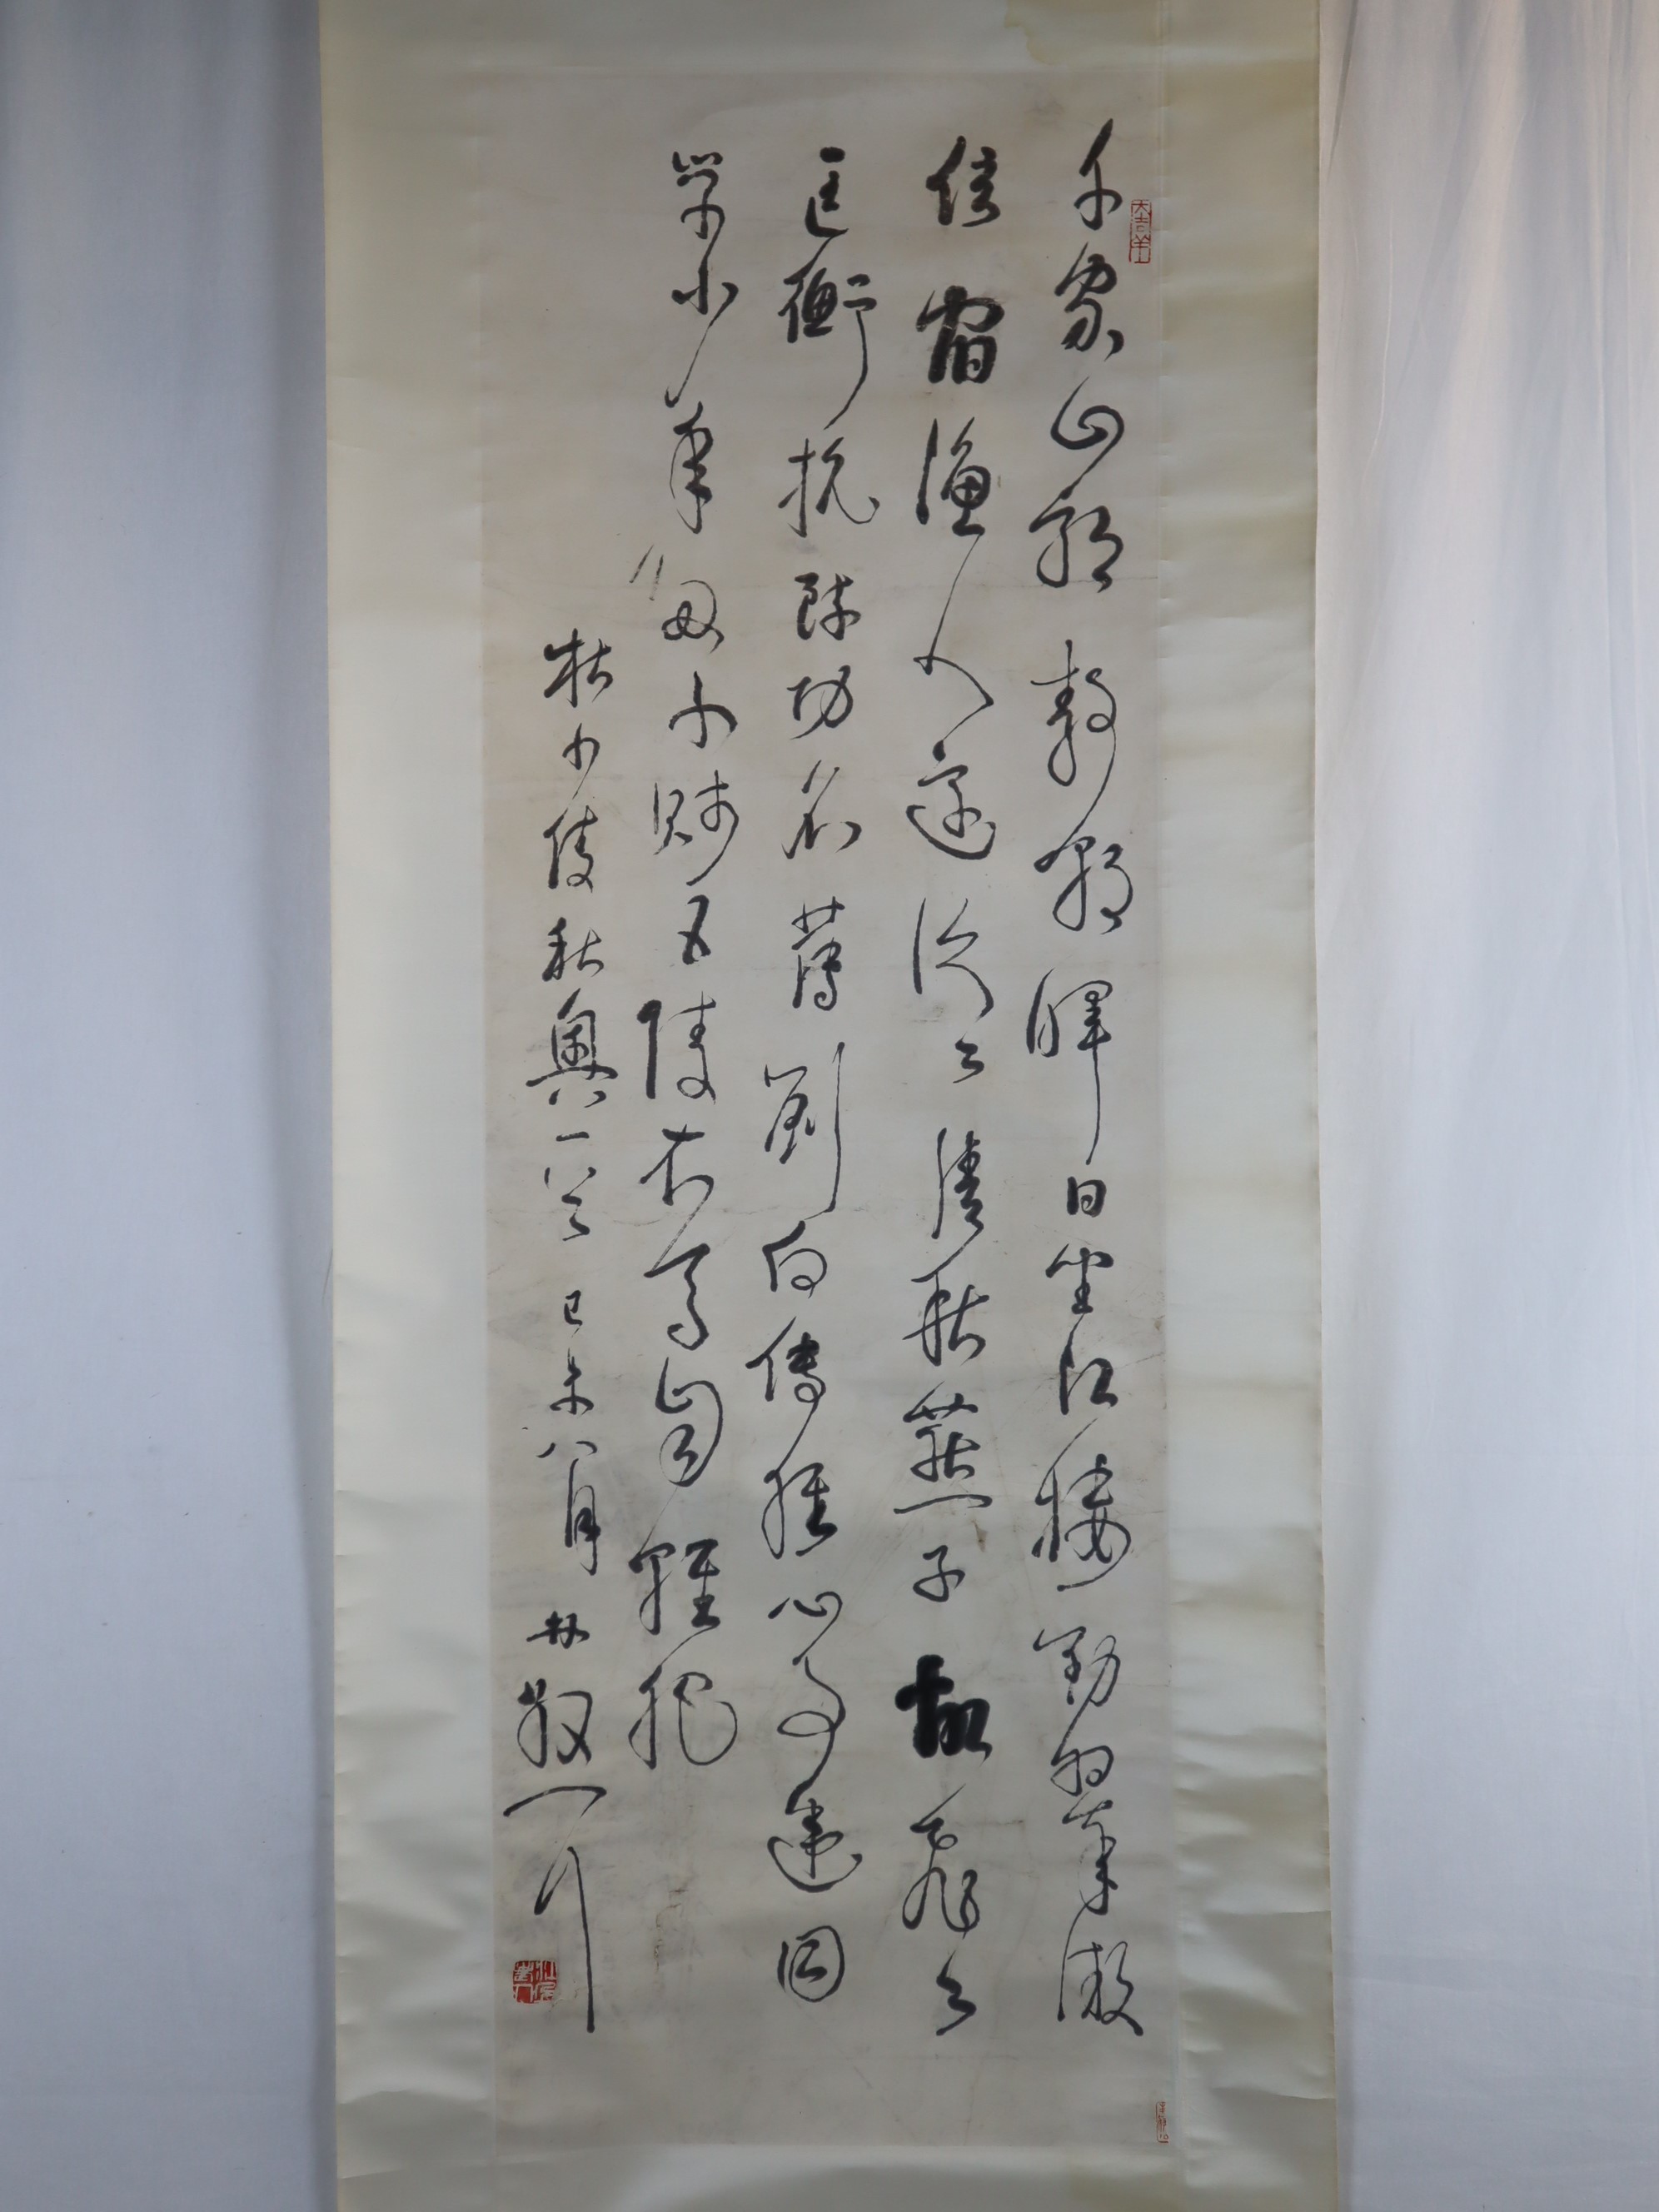 千家山郭静朝暉日坐江樓翠微
信宿漁人還泛々清秋燕子故飛々
匡衡抗疏功名薄劉向傳經心事違同
學少年多不賤五陵衣馬自輕肥
杜少陵秋興一首 己未八月 林散耳
大吉羊